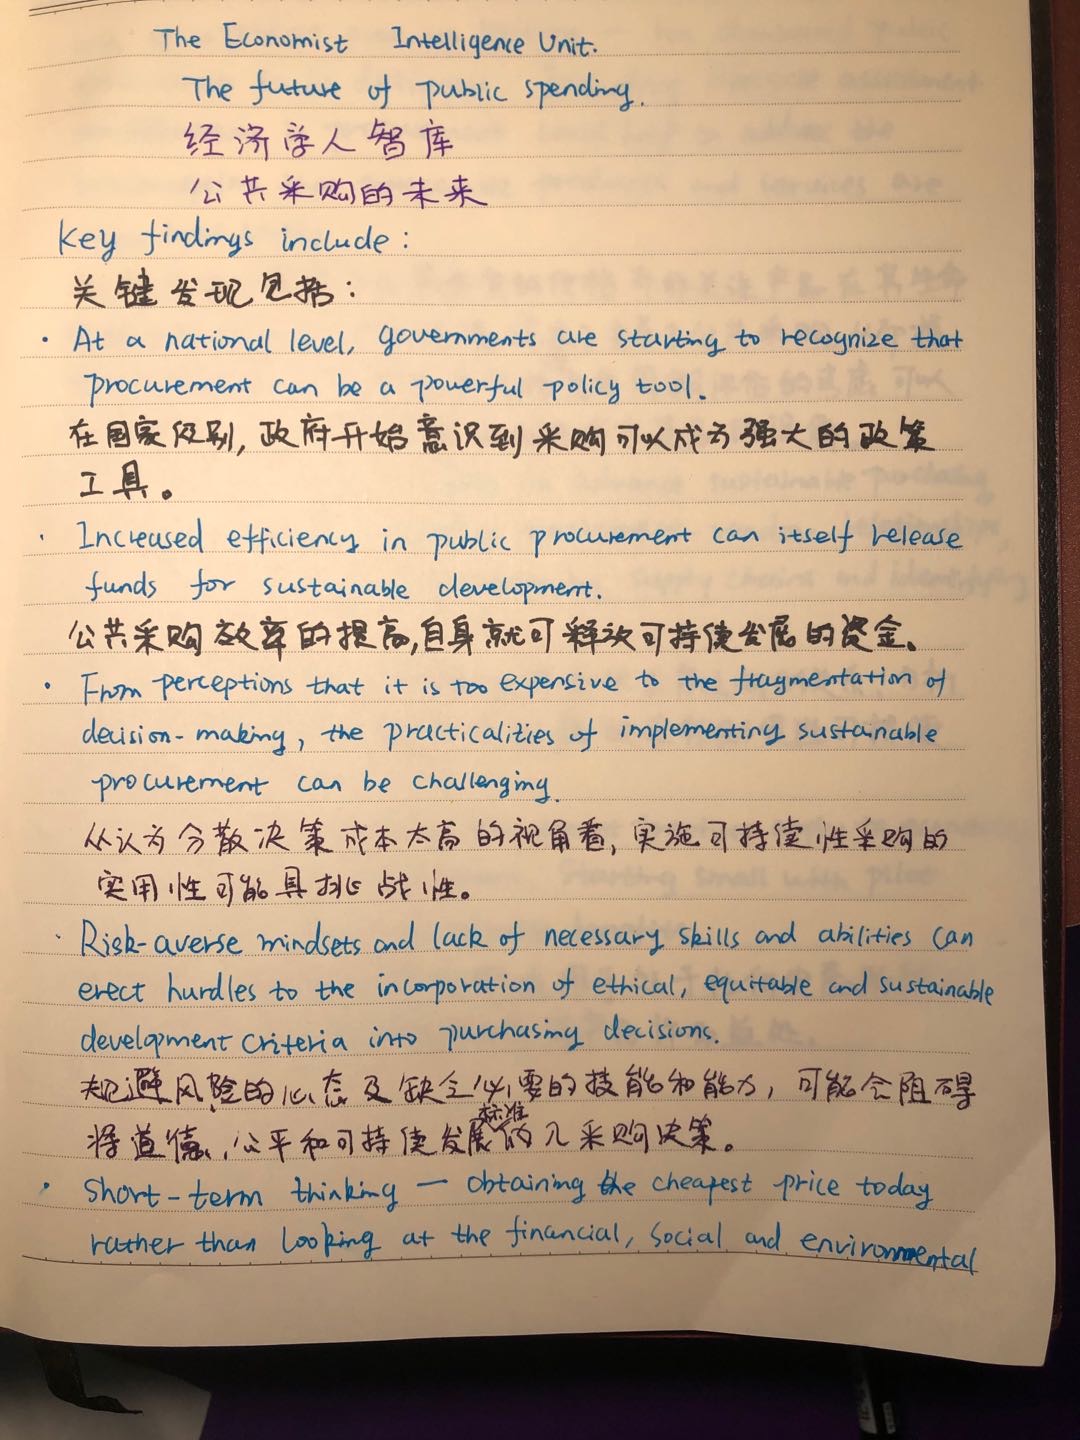 The Economist Intelligence Unit.
The future of public spending.
经济学人智库
公共采购的未来
Key findings include:
关键发现包括:
· At a national level, governments are starting to recognize that
procurement can be a powerful policy tool.
在国家级别,政府开始意识到采购可以成为强大的政策
工具。
· Increased efficiency in public procurement can itself release
funds for sustainable development.
公共采购效率的提高,自身就可释放可持续发展的资金。
· From perceptions that it is too expensive to the fragmentation of
decision-making, the practicalities of implementing sustainable
procurement can be challenging.
从认为分散决策成本太高的视角看,实施可持续性采购的
实用性可能具挑战性。
· Risk-averse mindsets and lack of necessary skills and abilities can
erect hurdles to the incorporation of ethical, equitable and sustainable
development criteria into purchasing decisions.
规避风险的心态及缺乏必要的技能和能力,可能会阻碍
标准
将道德、公平和可持续发展纳入采购决策。
· Short-term thinking — obtaining the cheapest price today
rather than looking at the financial, social and environmental